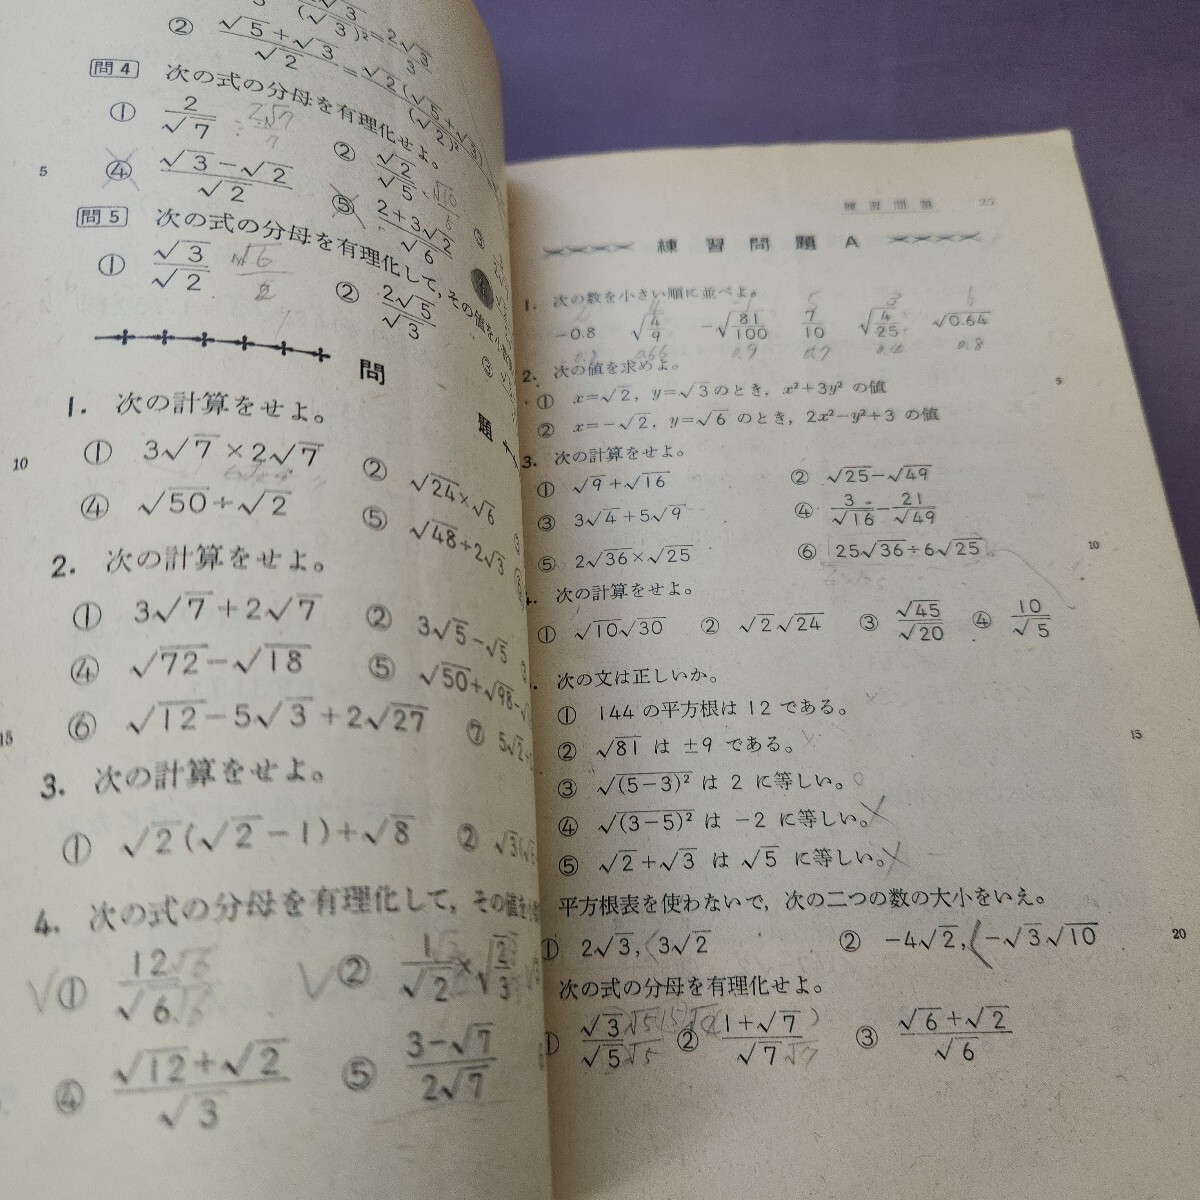 ② (√5+√3)/√2 = √2(√5+√3)/(√2)²
問4 次の式の分母を有理化せよ。
① 2/√7 ② √2/√5 ③
④ (√3-√2)/√2 ⑤ (2+3√2)/√6
5
問5 次の式の分母を有理化して，その値を小数
① √3/√2 ② 2√5/√3 ③
問 題
1. 次の計算をせよ。
① 3√7×2√7 ② √24×√6
10
④ √50÷√2 ⑤ √48÷2√3
2. 次の計算をせよ。
① 3√7+2√7 ② 3√5-√5
④ √72-√18 ⑤ √50+√98-
⑥ √12-5√3+2√27 ⑦ 5√2
15
3. 次の計算をせよ。
① √2(√2-1)+√8 ② √3(
4. 次の式の分母を有理化して，その値を小
① 12/√6 ② 1/√2×√(2/3)
④ (√12+√2)/√3 ⑤ (3-√7)/2√7
練習問題 25
練習問題 A
1. 次の数を小さい順に並べよ。
-0.8 √(4/9) -√(81/100) 7/10 √(4/25) √0.64
2. 次の値を求めよ。
① x=√2, y=√3のとき, x²+3y² の値 5
② x=-√2, y=√6 のとき, 2x²-y²+3 の値
3. 次の計算をせよ。
① √9+√16 ② √25-√49
③ 3√4+5√9 ④ 3/√16-21/√49
⑤ 2√36×√25 ⑥ 25√36÷6√25 10
次の計算をせよ。
① √10√30 ② √2√24 ③ √45/√20 ④ 10/√5
次の文は正しいか。
① 144 の平方根は 12 である。
② √81 は ±9 である。 15
③ √(5-3)² は 2 に等しい。
④ √(3-5)² は -2 に等しい。
⑤ √2+√3 は √5 に等しい。
平方根表を使わないで，次の二つの数の大小をいえ。
① 2√3, 3√2 ② -4√2, -√3√10 20
次の式の分母を有理化せよ。
① √3/√5 ② (1+√7)/√7 ③ (√6+√2)/√6